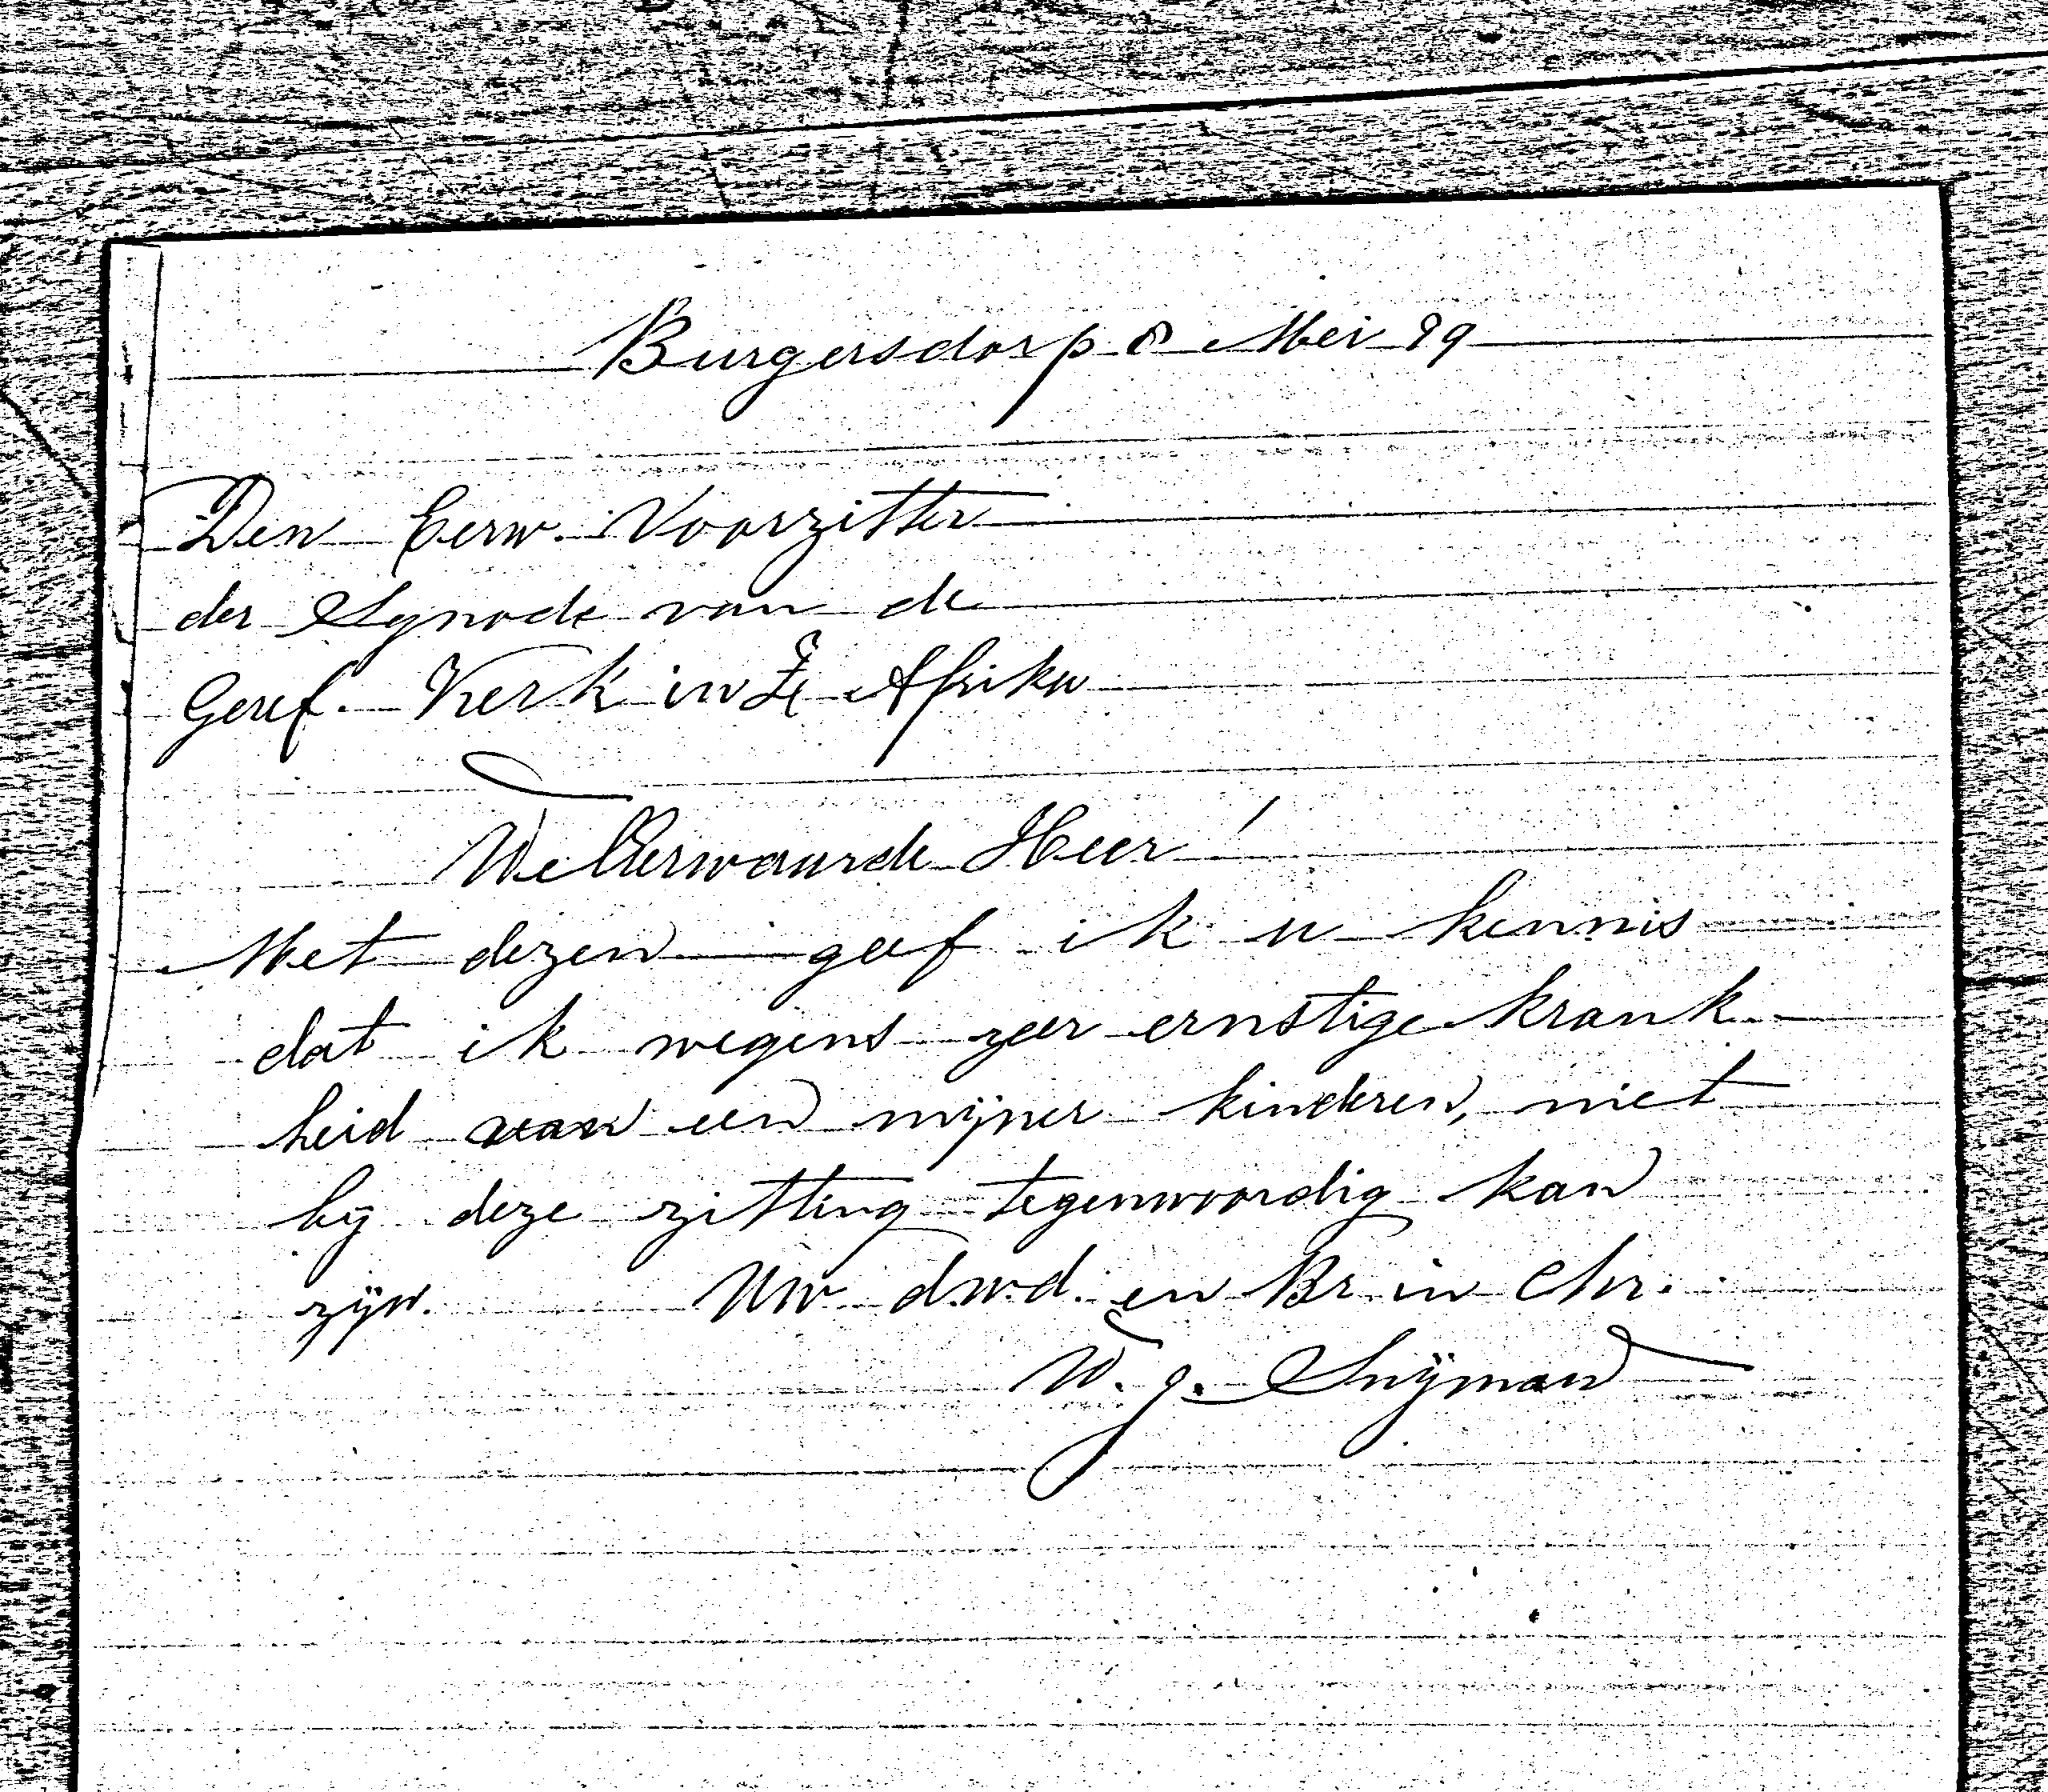 Burgersdorp 8 Mei 99
Den Eerw. Voorzitter
der Synode van de
Geref. Kerk in Z. Afrika
WelEerwaarde Heer!
Met dezen geef ik u kennis
dat ik wegens zeer ernstige krank
heid van een mijner kinderen, niet
bij deze zitting tegenwoordig kan
zijn. Uw d.w.d. en Br in Chr.
W. J. Snijman